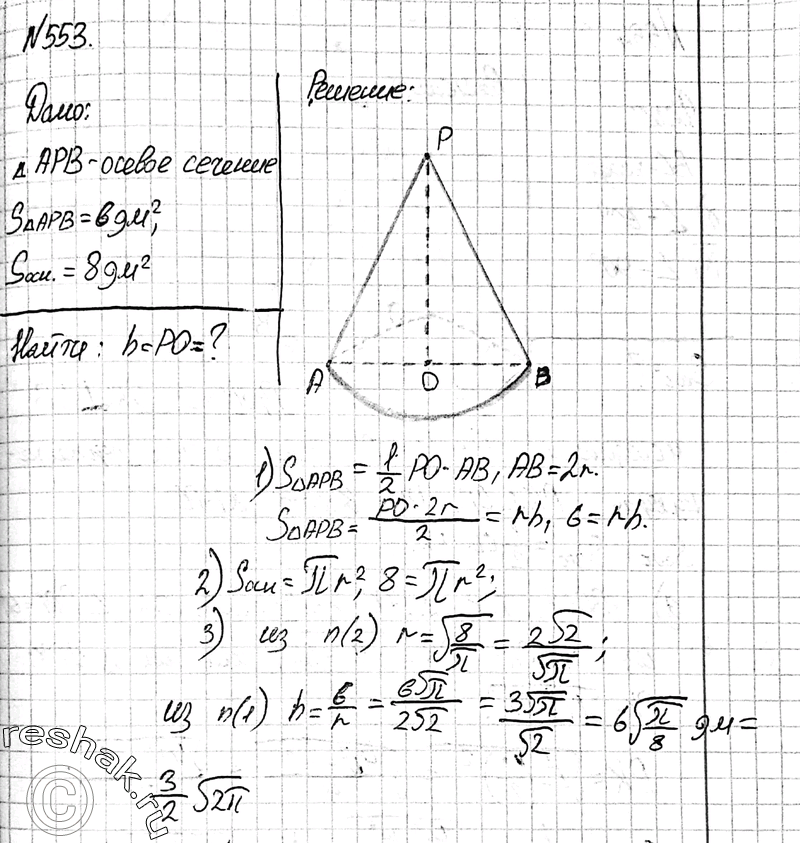 №553.
Дано:
Решение:
△APB-осевое сечение
S△APB = 6дм²,
Sосн. = 8дм²
Найти: h=PO=?
P
A
O
B
1) S△APB = 1/2 PO·AB, AB=2r.
S△APB = PO·2r/2 = rh, 6=rh.
2) Sосн = πr², 8=πr²;
3) из п(2) r=√(8/π) = 2√2/√π;
из п(1) h=6/r = 6√π/2√2 = 3√π/√2 = 6√(π/8) дм =
3/2 √2π
reshak.ru
©